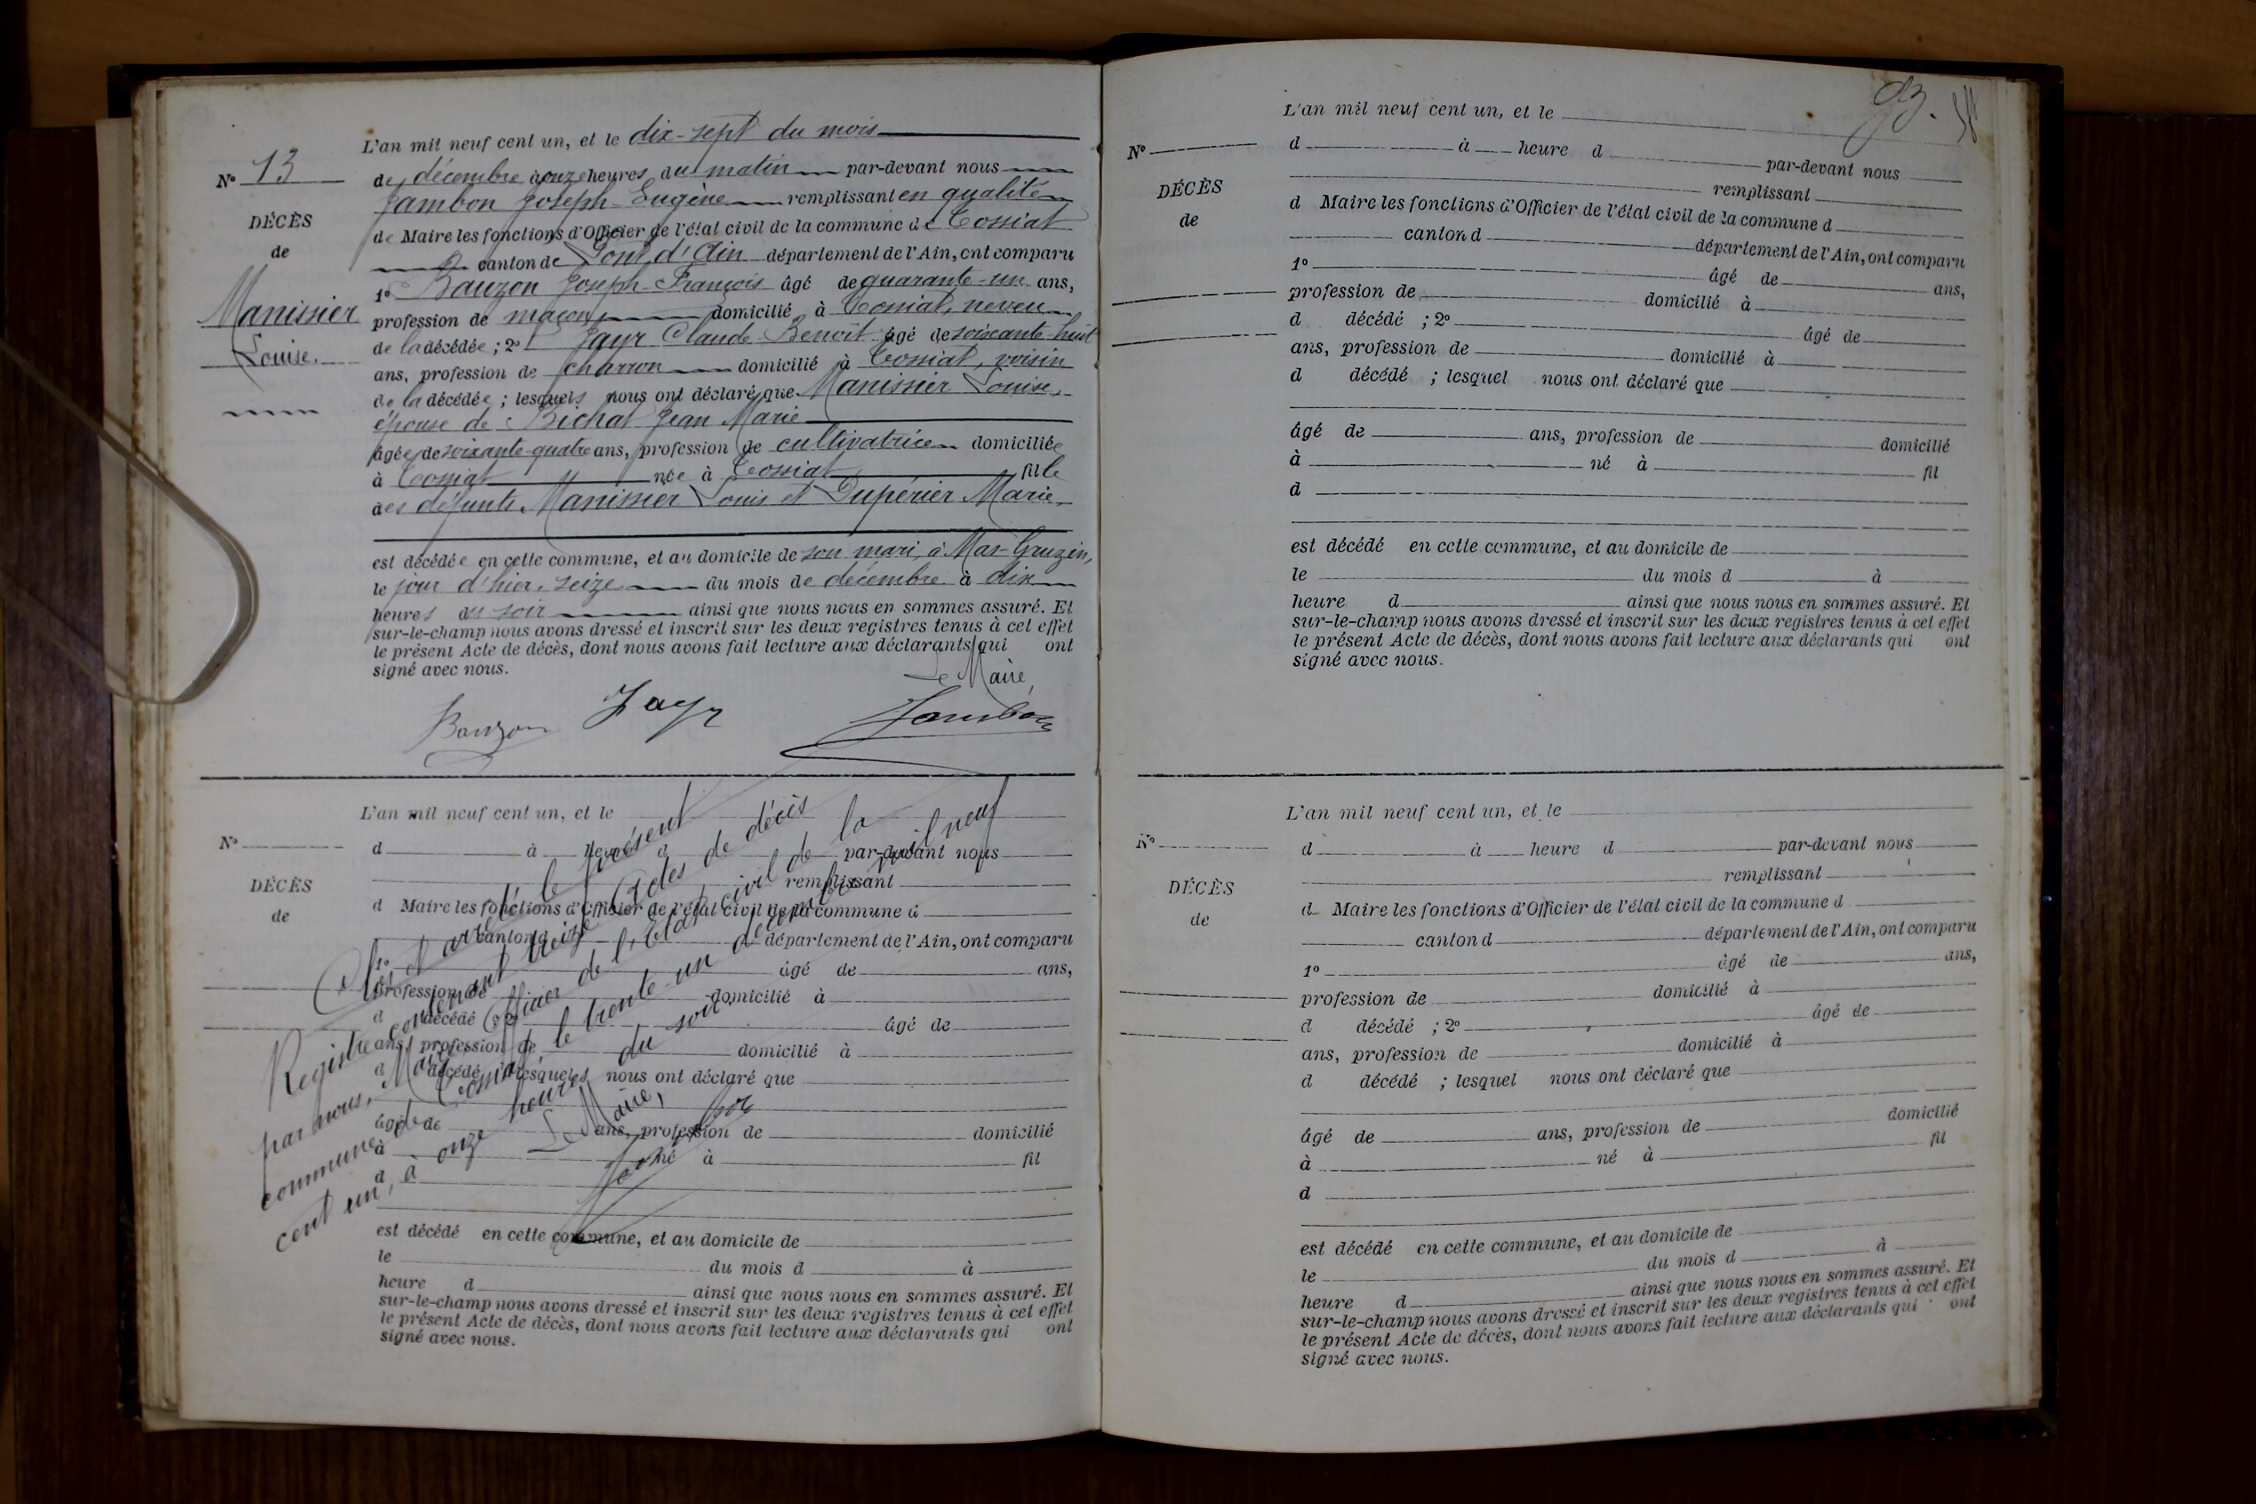 N° 13
DÉCÈS
de
Manissier
Louise.
L'an mil neuf cent un, et le dix-sept du mois
de décembre à onze heures du matin par-devant nous
Jambon Joseph-Eugène remplissant en qualité
de Maire les fonctions d'Officier de l'état civil de la commune de Tossiat
canton de Pont d'Ain département de l'Ain, ont comparu
1° Bauzon Joseph-François âgé de quarante-un ans,
profession de maçon domicilié à Tossiat, neveu
de la décédée ; 2° Jayr Claude-Benoît âgé de soixante-huit
ans, profession de charron domicilié à Tossiat, voisin
de la décédée ; lesquels nous ont déclaré que Manissier Louise,
épouse de Bichat Jean Marie
âgée de soixante-quatre ans, profession de cultivatrice domiciliée
à Tossiat née à Tossiat fille
des défunts Manissier Louis et Dupérier Marie
est décédée en cette commune, et au domicile de son mari, à Mas-Gruzin,
le jour d'hier, seize du mois de décembre à dix
heures du soir ainsi que nous nous en sommes assuré. Et
sur-le-champ nous avons dressé et inscrit sur les deux registres tenus à cet effet
le présent Acte de décès, dont nous avons fait lecture aux déclarants qui ont
signé avec nous.
Le Maire,
Bauzon Jayr Jambon
N°
DÉCÈS
de
L'an mil neuf cent un, et le
d à heure d par-devant nous
remplissant
d Maire les fonctions d'Officier de l'état civil de la commune d
canton d département de l'Ain, ont comparu
1° âgé de ans,
profession de domicilié à
d décédé ; 2° âgé de
ans, profession de domicilié à
d décédé ; lesquels nous ont déclaré que
âgé de ans, profession de domicilié
à né à fil
d
est décédé en cette commune, et au domicile de
le du mois d à
heure d ainsi que nous nous en sommes assuré. Et
sur-le-champ nous avons dressé et inscrit sur les deux registres tenus à cet effet
le présent Acte de décès, dont nous avons fait lecture aux déclarants qui ont
signé avec nous.
Clos et arrêté le présent
Registre contenant treize actes de décès
par nous, Maire officier de l'état civil de la
commune de Tossiat, le trente-un décembre mil neuf
cent un, à onze heures du soir.
Le Maire,
Jambon
93.
N°
DÉCÈS
de
L'an mil neuf cent un, et le
d à heure d par-devant nous
remplissant
d Maire les fonctions d'Officier de l'état civil de la commune d
canton d département de l'Ain, ont comparu
1° âgé de ans,
profession de domicilié à
d décédé ; 2° âgé de
ans, profession de domicilié à
d décédé ; lesquel nous ont déclaré que
âgé de ans, profession de domicilié
à né à fil
d
est décédé en cette commune, et au domicile de
le du mois d à
heure d ainsi que nous nous en sommes assuré. Et
sur-le-champ nous avons dressé et inscrit sur les deux registres tenus à cet effet
le présent Acte de décès, dont nous avons fait lecture aux déclarants qui ont
signé avec nous.
N°
DÉCÈS
de
L'an mil neuf cent un, et le
d à heure d par-devant nous
remplissant
d Maire les fonctions d'Officier de l'état civil de la commune d
canton d département de l'Ain, ont comparu
1° âgé de ans,
profession de domicilié à
d décédé ; 2° âgé de
ans, profession de domicilié à
d décédé ; lesquel nous ont déclaré que
âgé de ans, profession de domicilié
à né à fil
d
est décédé en cette commune, et au domicile de
le du mois d à
heure d ainsi que nous nous en sommes assuré. Et
sur-le-champ nous avons dressé et inscrit sur les deux registres tenus à cet effet
le présent Acte de décès, dont nous avons fait lecture aux déclarants qui ont
signé avec nous.